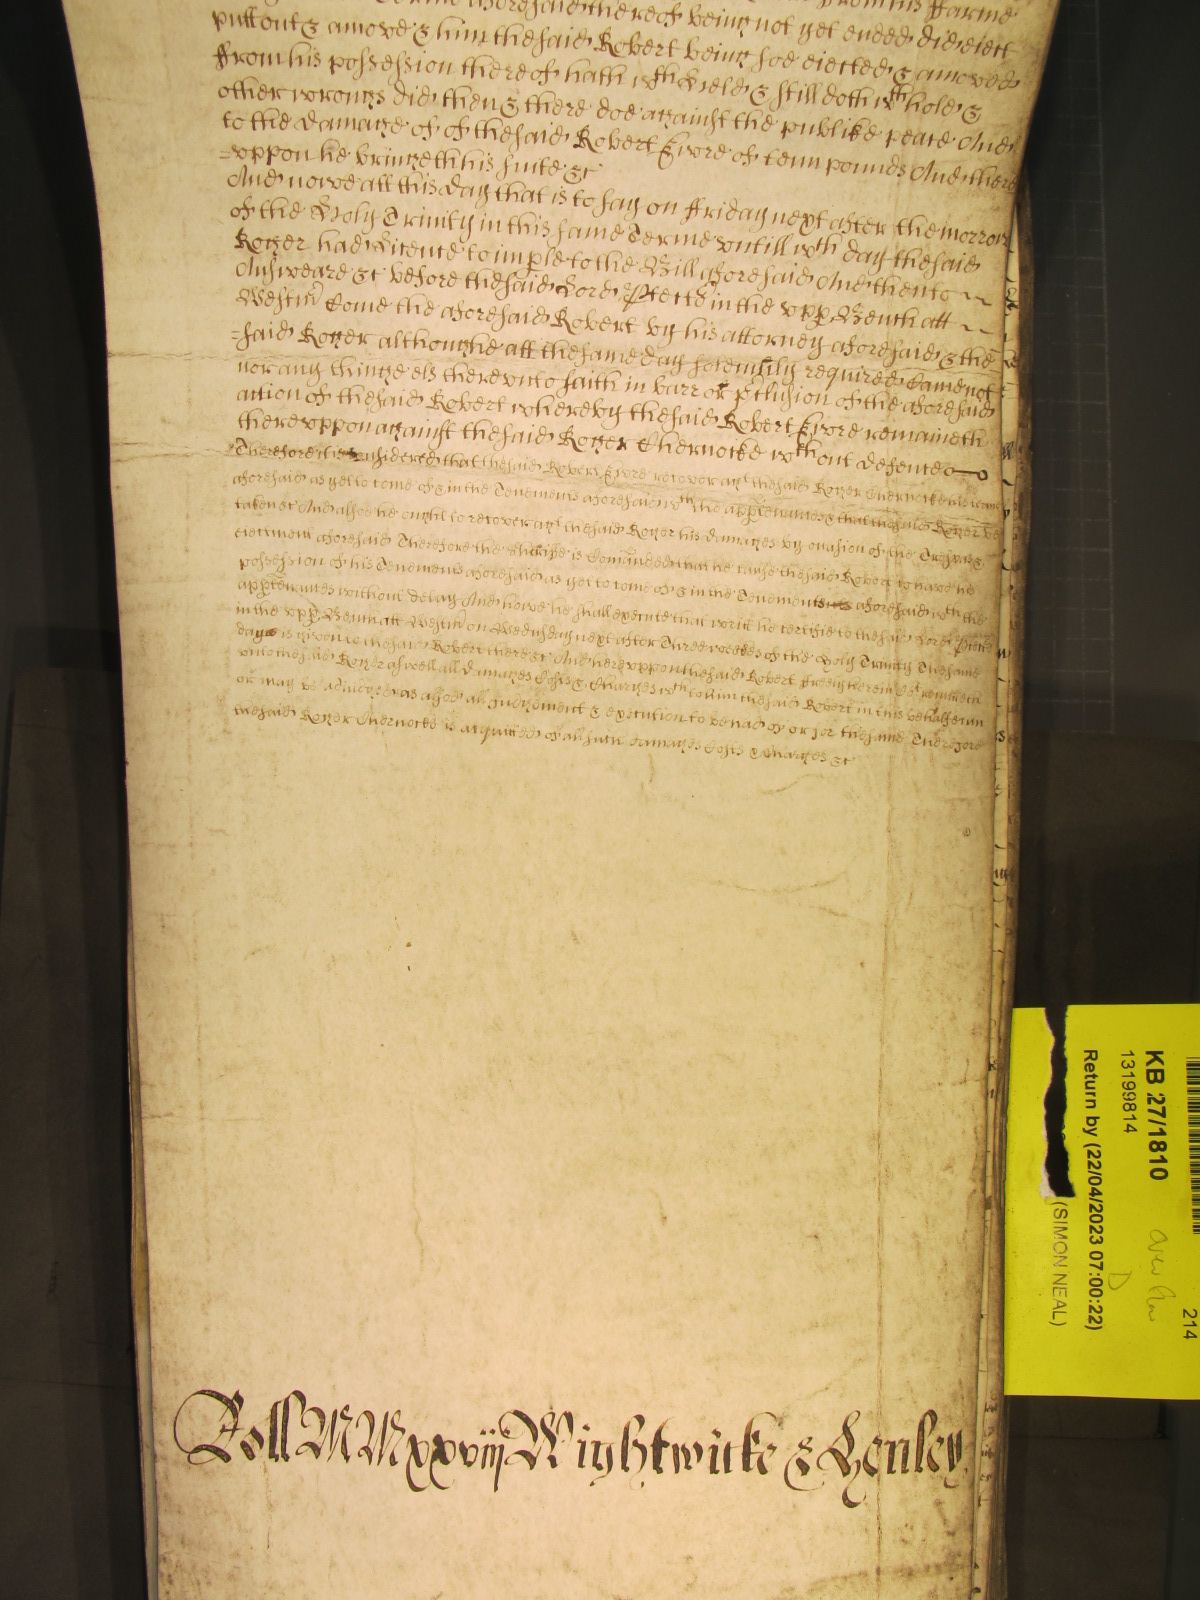 aforesaid thereof being not yet ended did eiect
putt out & amove & him the said Robert being soe eiected & amoved
from his possession thereof hath wthheld & still doth wthhold &
other wrongs did then & there doe against the publike peace And
to the damage of of the said Robert of tenn pounds And there
=vppon he bringeth his suite &c
And nowe att this day that is to say on ffriday next after the morrow
of the Holy Trinity in this same Terme vntill wch day the said
Roger had licence to imple to the Bill aforesaid And then to
Answeare &c before the said Lord Ptector in the vpp Bench att
Westmr Come the aforesaid Robert by his attorney aforesaid & the
=said Roger although he att the same day solemnly required Came not
nor any thinge els therevnto saith in barr or pclusion of the aforesaid
action of the said Robert whereby the said Robert remaineth
therevppon against the said Roger Chernocke wthout defence
Therefore it is considered that the said Robert recover agt the said Roger Chernocke his terme
aforesaid as yet to come of & in the Tenements aforesaid wth the apptenances & that the said Roger be
taken &c And alsoe he ought to recover agt the said Roger his damages by occasion of the Trespas &
eiectmont aforesaid Therefore the Sheriffe is Comanded that he cause the said Robert to have his
possession of his Tenements aforesaid as yet to come of & in the Tenements aforesaid wth the
apptenances without delay And howe he shall execute that writt he certifie to the said Lord Ptector
in the vpp Bench att Westmr on Wednesday next after Three weekes of the Holy Trinity The same
day is given to the said Robert there &c And herevppon the said Robert freely here in Cort remitteth
vnto the said Roger aswell all damages Costs & Charges wch to him the said Robert in this behalfe
or may be adiudged as alsoe all Iudgment & execution to be had of or for the same Therefore
the said Roger Chernocke is acquitted of all such damages Costs & Charges &c
Roll MMxxviij Wightwicke & Henley
KB 27/1810
13199814
Return by (22/04/2023 07:00:22)
(SIMON NEAL)
214
D